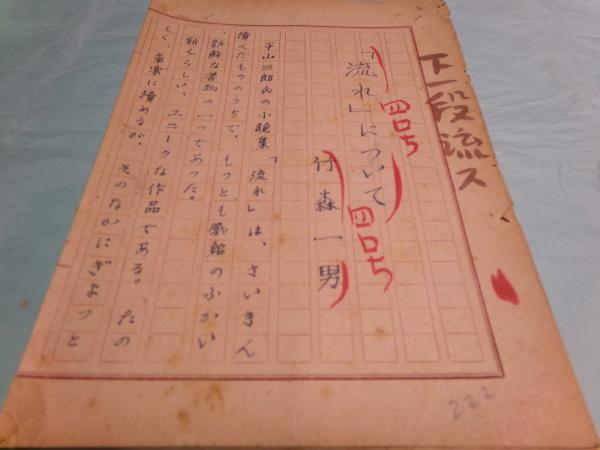 下一段流ス
「流れ」について
四号
竹森一男
四号
平山三郎氏の小説集「流れ」は、さいきん
読んだもののうちで、もっとも感銘のふかい
、新鮮な書物の一つであった。
新らしい、ユニークな作品である。たの
しく、気楽に読めるが、そのなかにぎよっと
222